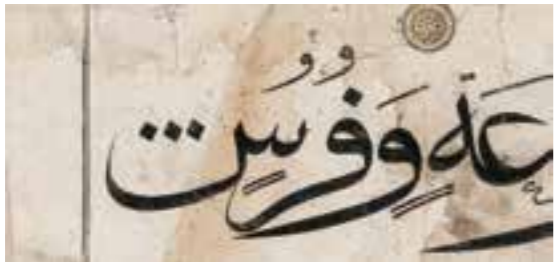 عَةٍ وَفُرُشٍ